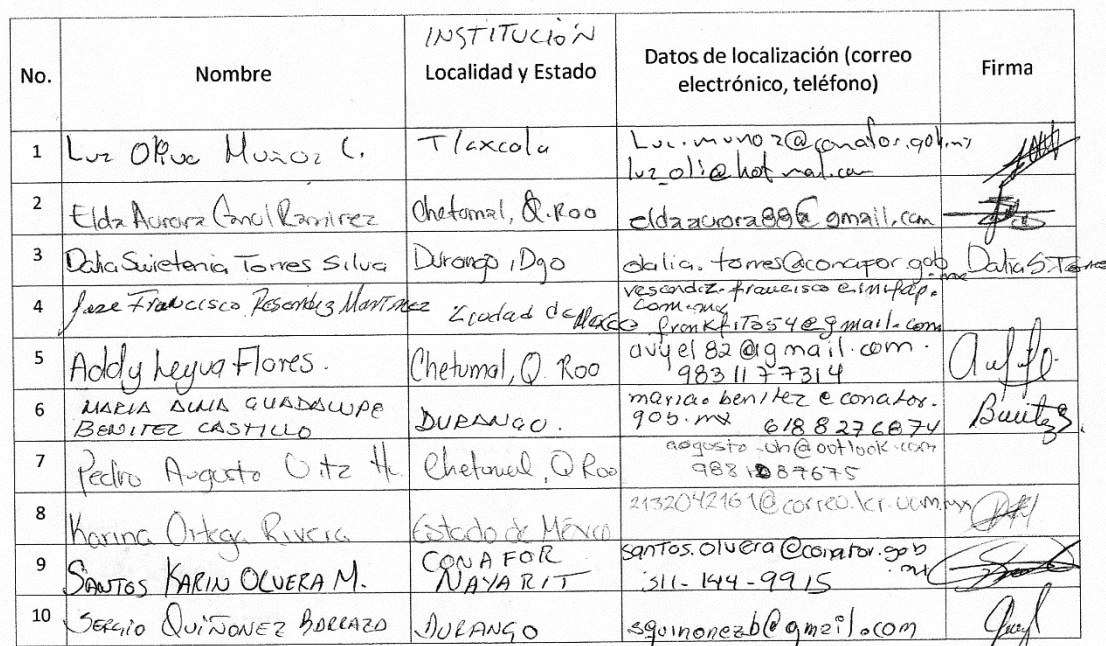 INSTITUCIÓN
No. Nombre Localidad y Estado Datos de localización (correo electrónico, teléfono) Firma
1 Luz Oliva Muñoz C. Tlaxcala Luz.munoz@conafor.gob.mx
luz_oli@hotmail.com
2 Elda Aurora Canul Ramirez Chetumal, Q.Roo eldaaurora88@gmail.com
3 Dalia Swietenia Torres Silva Durango, Dgo dalia.torres@conafor.gob.mx Dalia S. Torres
4 Jose Francisco Resendiz Martinez Ciudad de Mexico resendiz.francisco@inifap.
com.mx
frankfito54@gmail.com
5 Addy Leyva Flores. Chetumal, Q. Roo avyel82@gmail.com.
983 11 7 7314
6 MARIA ALMA GUADALUPE
BENITEZ CASTILLO DURANGO. maria.benitez@conafor.
gob.mx 6188276874 Benitez
7 Pedro Augusto Uitz H. Chetumal, Q Roo augusto_uh@outlook.com
983 87675
8 Karina Ortega Rivera Estado de México 2132042161@correo.ler.uam.mx
9 SANTOS KARIN OLVERA M. CONAFOR
NAYARIT santos.olvera@conafor.gob.mx
311-144-9915
10 SERGIO QUIÑONEZ BARRAZA DURANGO squinonezb@gmail.com